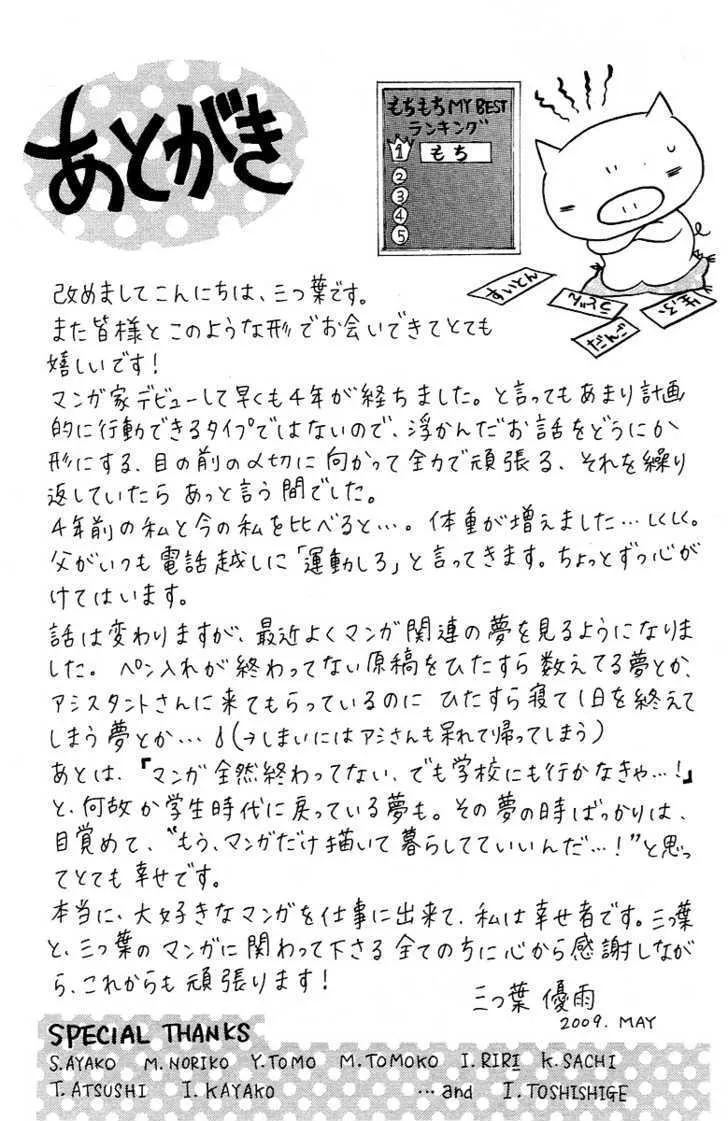 あとがき
もちもちMY BEST
ランキング
1 もち
2
3
4
5
すいとん
うどん
だんご
ぎょうざ
改めましてこんにちは、三つ葉です。
また皆様とこのような形でお会いできてとても
嬉しいです!
マンガ家デビューして早くも4年が経ちました。と言ってもあまり計画
的に行動できるタイプではないので、浮かんだお話をどうにか
形にする、目の前の〆切に向かって全力で頑張る、それを繰り
返していたらあっと言う間でした。
4年前の私と今の私を比べると…。体重が増えました…しくしく。
父がいつも電話越しに「運動しろ」と言ってきます。ちょっとずつ心が
けてはいます。
話は変わりますが、最近よくマンガ関連の夢を見るようになりま
した。ペン入れが終わってない原稿をひたすら数えてる夢とか、
アシスタントさんに来てもらっているのにひたすら寝て1日を終えて
しまう夢とか…(→しまいにはアシさんも呆れて帰ってしまう)
あとは、『マンガ全然終わってない、でも学校にも行かなきゃ…!』
と、何故か学生時代に戻っている夢も。その夢の時ばっかりは、
目覚めて、〝もう、マンガだけ描いて暮らしてていいんだ…!〟と思っ
てとても幸せです。
本当に、大好きなマンガを仕事に出来て、私は幸せ者です。三つ葉
と、三つ葉のマンガに関わって下さる全てのちに心から感謝しなが
ら、これからも頑張ります!
三つ葉優雨
2009. MAY
SPECIAL THANKS
S.AYAKO M.NORIKO Y.TOMO M.TOMOKO I.RIRI K.SACHI
T.ATSUSHI I.KAYAKO …and I.TOSHISHIGE